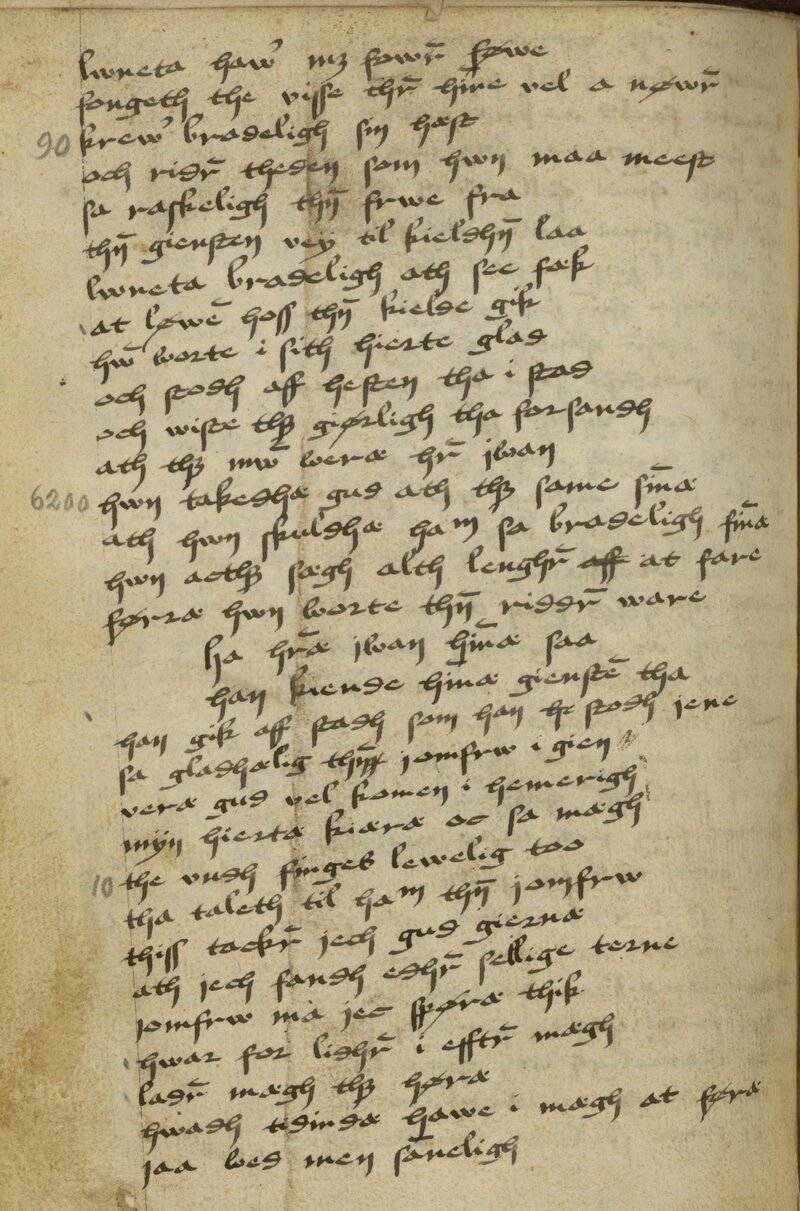 lwneta haw̄ mȝ sowr̄ søwe
songeth the visse thr̄ hine vel a nøwr̄
90 krew̄ bradeligh sin hæst
och ridr̄ theden som hwn maa meest
sa raskeligh thn̄ frwe fra
thn̄ giensten vey til kieldhn̄ laa
lwneta bradeligh ath see fæk
at løwē hoss thn̄ kielde gik
hw̄ worte i sith hierte glad
och stodh aff hesten tha i stad
och wiste thȝ giørligh tha forsandh
ath thȝ mw̄ weræ hr̄ jwan
6200 hwn takedhæ gud ath thȝ same sin̄æ
ath hwn skuldhæ ham sa bradeligh fin̄æ
hwn acthȝ sægh alth lenghr̄ aff at fare
førræ hwn worte thn̄ riddr̄ ware
ha hr̄æ jwan hin̄æ saa
han kiende hinæ gienstē tha
han gik aff stadh som han he stodh jene
sa gladhælig thn̄ jomfrw i gien
veræ gud vel komen i hemerigh
myn hiertæ kiæræ oc sa mægh
10 the vndh finges lewelig too
tha taleth til ham thn̄ jomfrw
thiss tackr̄ jech gud giernæ
ath jech fandh edhr̄ sellige terne
jomfrw ma jec spøræ thik
hwar for lidhr̄ i efftr̄ mægh
ladr̄ mægh thȝ høræ
hwadh tidindæ hawe i mægh at føræ
jaa wed men saneligh